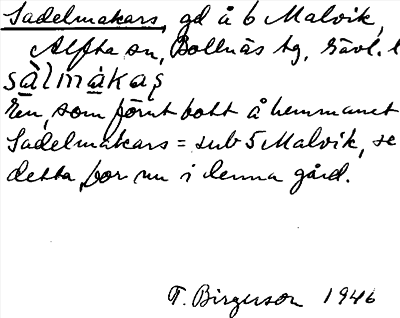 Sadelmakars, gd å 6 Malvik,
Alfta sn, Bollnäs tg, Gävl. l
sàlmákaş
En, som förut bott å hemmanet
Sadelmakars = sub 5 Malvik, se
detta, bor nu i denna gård.
T. Birgerson 1946